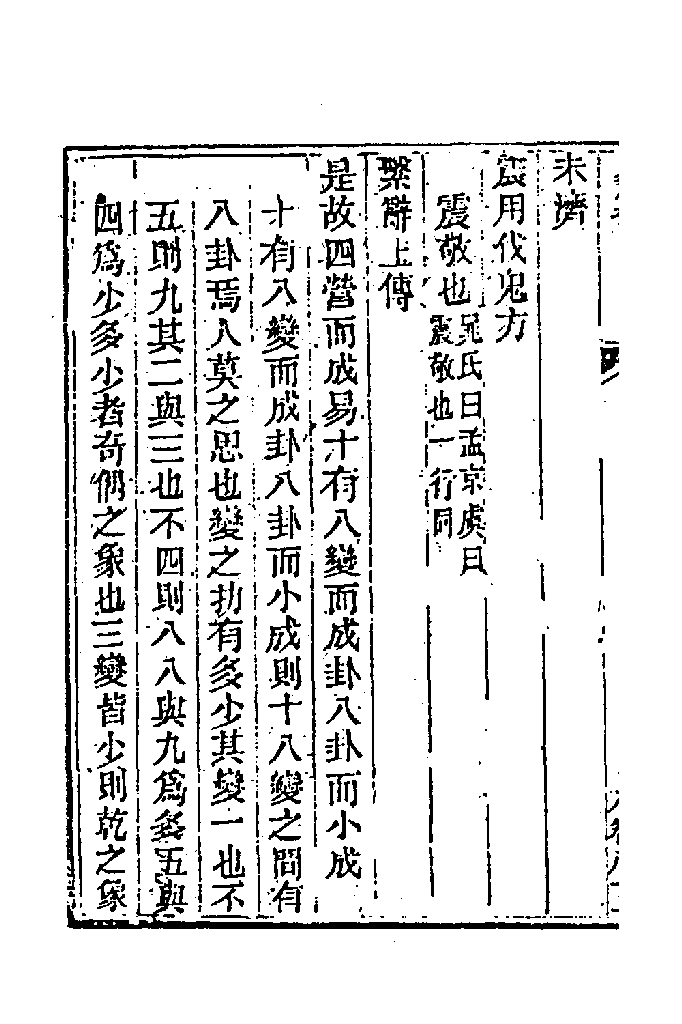 未濟
震用伐鬼方
震敬也晁氏曰孟京虞曰
震敬也一行同
繫辭上傳
是故四營而成易十有八變而成卦八卦而小成
十有八變而成卦八卦而小成則十八變之間有
八卦焉人莫之思也變之扐有多少其變一也不
五則九其二與三也不四則八八與九爲多五與
四爲少多少者奇偶之象也三變皆少則乾之象